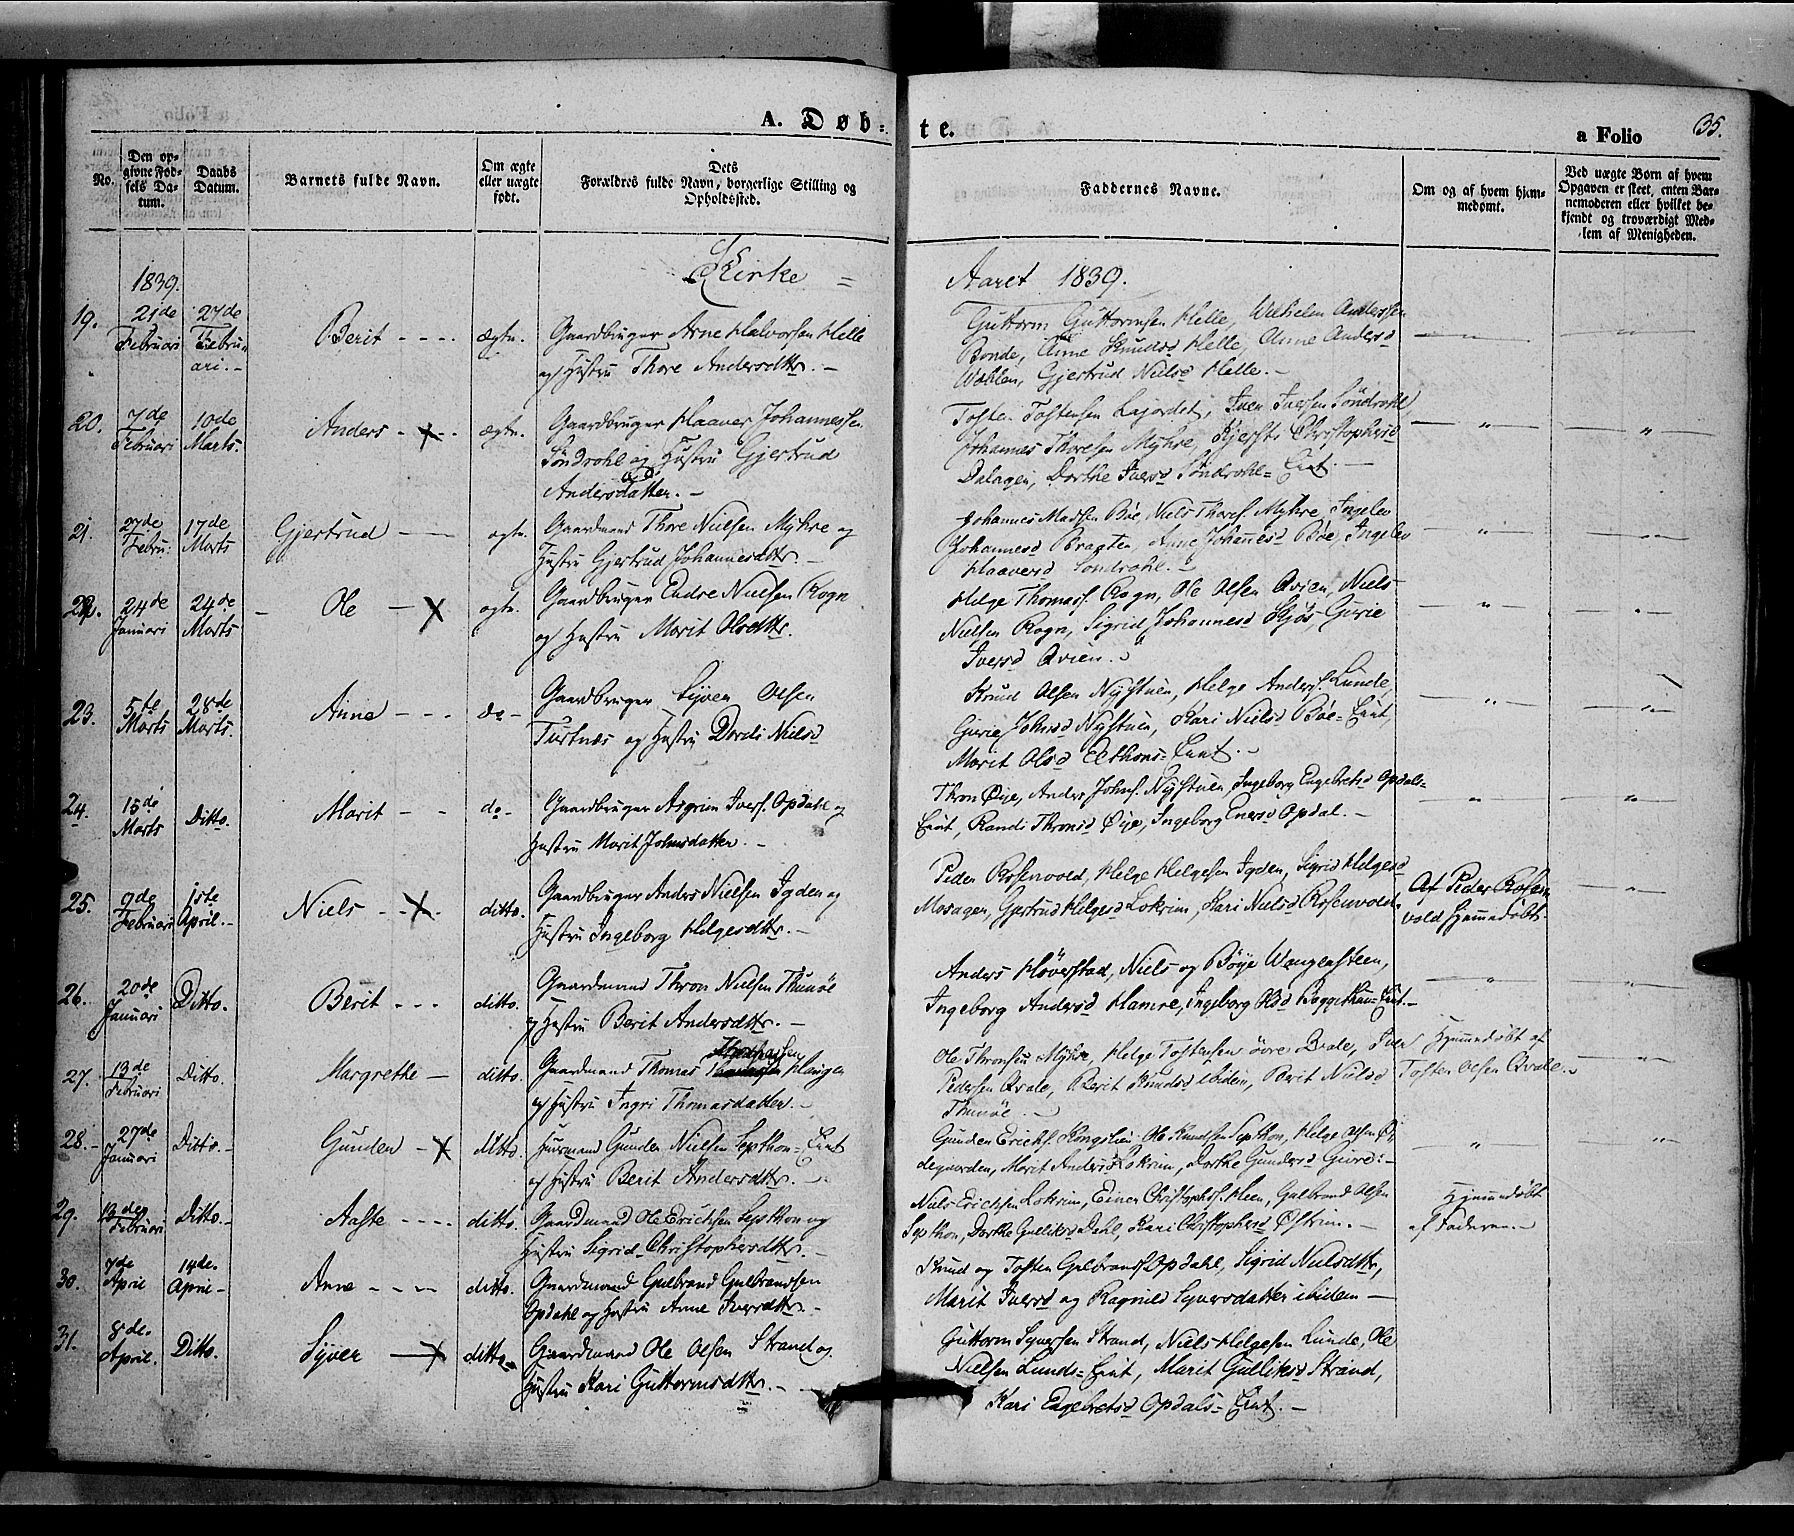 A. Døbte.
a Folio 35.
No.
Den opgivne Fødsels Datum.
Daabs Datum.
Barnets fulde Navn.
Om ægte eller uægte født.
Dets Forældres fulde Navn, borgerlige Stilling og Opholdssted.
Faddernes Navne.
Om og af hvem hjemmedømt.
Ved uægte Børn af hvem Opgaven er skeet, enten Barnemoderen eller hvilket bekjendt og troværdigt Medlem af Menigheden.
1839.
Kirke =
Aaret 1839.
19. 21de Februari 27de Februari. Berit ægte.
Gaardbruger Arne Halvorsen Helle
og Hustru Thore Andersdttr.
Guttorm Guttormsen Helle, Wilhelm Anderssen
Bonde, Anne Knudsd Helle, Anne Andersd
Wahlen, Gjertrud Nielsd Helle.
20. 7de Februari 10de Marts. Anders ægte.
Gaardbruger Haaver Johannessen
Søndrohl og Hustru Gjertrud
Andersdatter.
Tosten Tostensen Lajordet, Iver Iversen Søndrohl
Johannes Thoresen Myhre, Kjersti Christophersd
Dalagen, Dorthe Iversd Søndrohls=Eint.
21. 27de Febru: 17de Marts Gjertrud ægte.
Gaardmand Thore Nielsen Myhre og
Hustru Gjertrud Johannesdttr.
Johannes Madsen Bøe, Niels Thoresf. Myhre, Ingelev
Johannesd Bragten, Anne Johannesd Bøe, Ingelev
Haaversd Søndrohl.
22. 24de Januari 24de Marts Ole ægte.
Gaardbruger Endre Nielsen Rogn
og Hustru Marit Olsdttr.
Helge Thomasf. Rogn, Ole Olsen Qvien, Niels
Nielsen Rogn, Sigrid Johannesd Skjøs, Gurie
Iversd Qvien.
23. 5te Marts 28de Marts. Anne do
Gaardbruger Syver Olsen
Turtnes og Hustru Dordi Nielsd
Knud Olsen Nystuen, Helge Andersf. Lunde,
Gurie Johnsd Nystuen, Kari Nielsd Bøe=Eint,
Marit Olsd Elthons=Eint.
24. 15de Marts Ditto. Marit do
Gaardbruger Asgrim Iversf. Opdahl og
Hustru Marit Johnsdatter.
Thron Øije, Anders Johnsf. Nystuen, Ingeborg Engebretsd Opdals=
Eint, Randi Thronsd Øije, Ingeborg Enersd Opdal.
25. 9de Februari 1ste April. Niels ditto.
Gaardbruger Anders Nielsen Igden og
Hustru Ingeborg Helgesdttr.
Peder Rosenvold, Helge Helgesen Igden, Sigrid Helgesd
Mosagen, Gjertrud Helgesd Lokrim, Kari Nielsd Rosenvold.
Af Peder Rosen
vold hjemmedøbt.
26. 20de Januari Ditto. Berit ditto.
Gaardmand Thron Nielsen Thunøe
og Hustru Berit Andersdttr.
Anders Høverstad, Niels og Böye Wangensteen,
Ingeborg Andersd Hamre, Ingeborg Olsd Loggethun=Eint.
27. 13de Februari Ditto. Margrethe ditto.
Gaardmand Thomas Thomassen Haugen
og Hustru Ingri Thomasdatter.
Ole Thronsen Myhre, Helge Tostensen øvre Qvale, Peder
Pedersen Qvale, Berit Knudsd ibidem, Berit Nielsd
Thunøe.
Hjemmedøbt af
Tosten Olsen Qvale.
28. 27de Januari Ditto. Gunder ditto.
Huusmand Gunder Nielsen Septhon=Eint
og Hustru Berit Andersdttr.
Gunder Erichsf. Kongslien, Ole Knudsen Septhon, Helge Olsen Ø
degaarden, Marit Andersd Lokrim, Dorthe Gundersd Guire.
29. 13de Februari Ditto. Aaste ditto.
Gaardmand Ole Erichsen Septhon og
Hustru Sigrid Christophersdttr.
Niels Erichsen Lokrim, Einer Christophersf. Heen, Gulbrand Olsen
Septhon, Dorthe Gulliksd Dahl, Kari Christophersd Østrim.
Hjemmedøbt
af Faderen
30. 7de April 14de. April Anne ditto.
Gaardmand Gulbrand Gulbrandsen
Opdahl og Hustru Anne Iversdttr.
Knud og Tosten Gulbrandsf. Opdahl, Sigrid Nielsdttr,
Marit Iversd og Ragnild Syversdatter ibidem
31. 8de. April. Ditto. Syver ditto
Gaardmand Ole Olsen Strand og
Hustru Kari Guttormsdttr.
Guttorm Syversen Strand, Niels Helgesen Lunde, Ole
Nielsen Lunds=Eint, Marit Gulliksd Strand,
Kari Engebretsd Opdals=Eint.